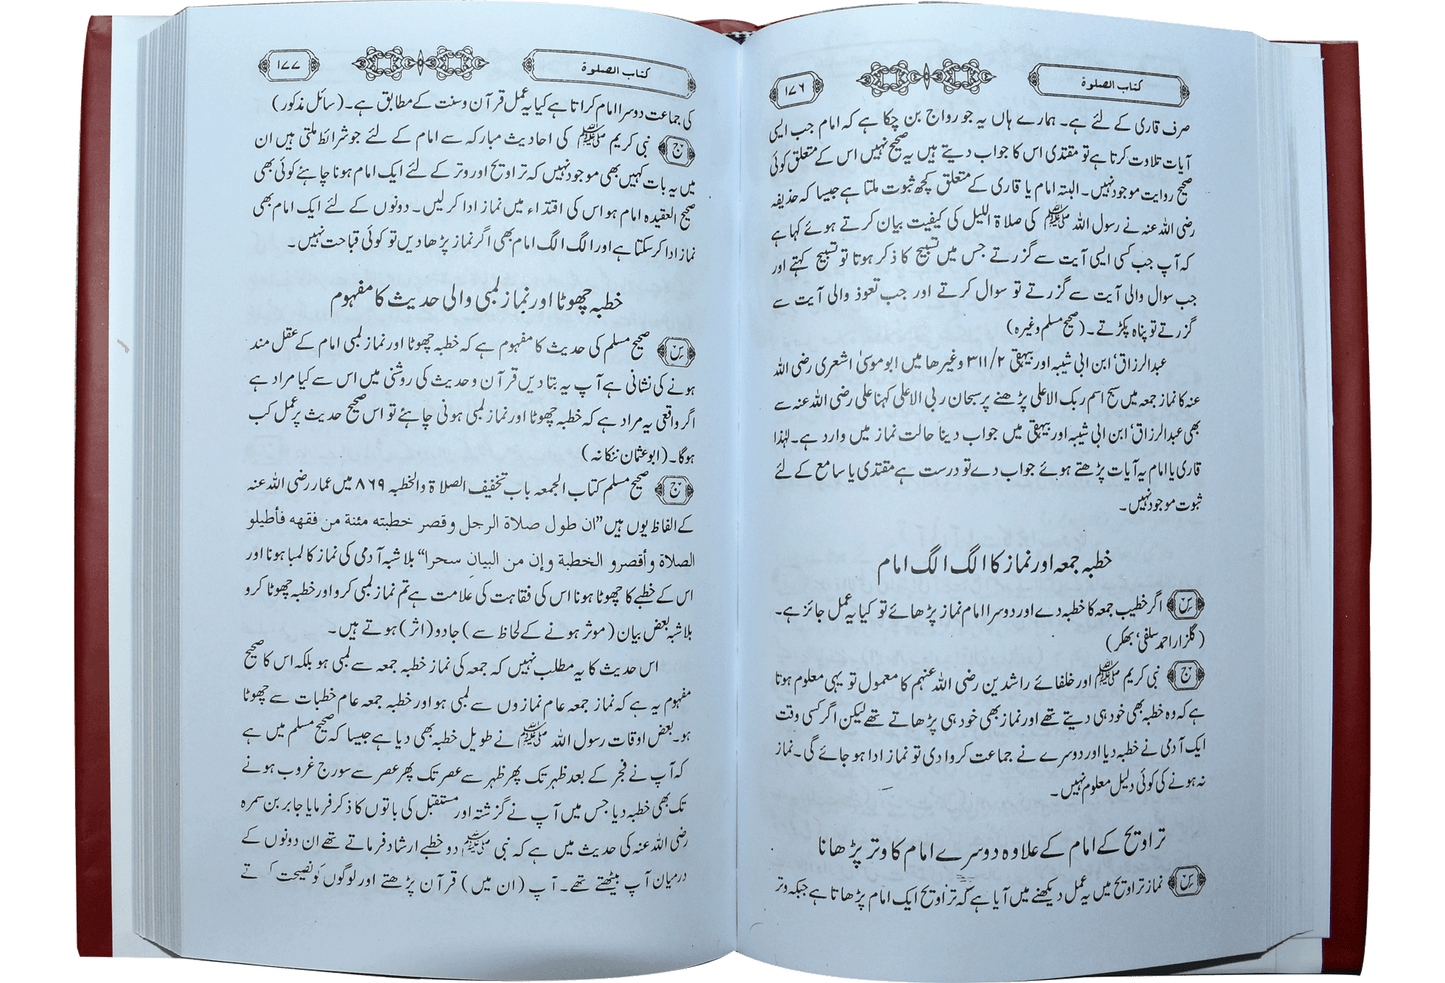 کتاب الصلوٰۃ
۱۷۶
صرف قاری کے لئے ہے۔ ہمارے ہاں یہ جو رواج بن چکا ہے کہ امام جب ایسی
آیات تلاوت کرتا ہے تو مقتدی اس کا جواب دیتے ہیں یہ صحیح نہیں اس کے متعلق کوئی
صحیح روایت موجود نہیں۔ البتہ امام یا قاری کے متعلق کچھ ثبوت ملتا ہے جیسا کہ حذیفہ
رضی اللہ عنہ نے رسول اللہ ﷺ کی صلاۃ اللیل کی کیفیت بیان کرتے ہوئے کہا ہے
کہ آپ جب کسی ایسی آیت سے گزرتے جس میں تسبیح کا ذکر ہوتا تو تسبیح کہتے اور
جب سوال والی آیت سے گزرتے تو سوال کرتے اور جب تعوذ والی آیت سے
گزرتے تو پناہ پکڑتے۔ (صحیح مسلم وغیرہ)
عبدالرزاق' ابن ابی شیبہ اور بیہقی ۳۱۱/۲ وغیرھا میں ابوموسیٰ اشعری رضی اللہ
عنہ کا نماز جمعہ میں سبح اسم ربک الاعلی پڑھنے پر سبحان ربی الاعلی کہنا علی رضی اللہ عنہ سے
بھی عبدالرزاق' ابن ابی شیبہ اور بیہقی میں جواب دینا حالت نماز میں وارد ہے۔ لہٰذا
قاری یا امام یہ آیات پڑھتے ہوئے جواب دے تو درست ہے مقتدی یا سامع کے لئے
ثبوت موجود نہیں۔
خطبہ جمعہ اور نماز کا الگ الگ امام
س اگر خطیب جمعہ کا خطبہ دے اور دوسرا امام نماز پڑھائے تو کیا یہ عمل جائز ہے۔
(گلزار احمد سلفی' بھکر)
ج نبی کریم ﷺ اور خلفائے راشدین رضی اللہ عنہم کا معمول تو یہی معلوم ہوتا
ہے کہ وہ خطبہ بھی خود ہی دیتے تھے اور نماز بھی خود ہی پڑھاتے تھے لیکن اگر کسی وقت
ایک آدمی نے خطبہ دیا اور دوسرے نے جماعت کروا دی تو نماز ادا ہو جائے گی۔ نماز
نہ ہونے کی کوئی دلیل معلوم نہیں۔
تراویح کے امام کے علاوہ دوسرے امام کا وتر پڑھانا
س نماز تراویح میں یہ عمل دیکھنے میں آیا ہے کہ تراویح ایک امام پڑھاتا ہے جبکہ وتر
کتاب الصلوٰۃ
۱۷۷
کی جماعت دوسرا امام کراتا ہے کیا یہ عمل قرآن وسنت کے مطابق ہے۔ (سائل مذکور)
ج نبی کریم ﷺ کی احادیث مبارکہ سے امام کے لئے جو شرائط ملتی ہیں ان
میں یہ بات کہیں بھی موجود نہیں کہ تراویح اور وتر کے لئے ایک امام ہونا چاہئے کوئی بھی
صحیح العقیدہ امام ہو اس کی اقتداء میں نماز ادا کر لیں۔ دونوں کے لئے ایک امام بھی
نماز ادا کر سکتا ہے اور الگ الگ امام بھی اگر نماز پڑھا دیں تو کوئی قباحت نہیں۔
خطبہ چھوٹا اور نماز لمبی والی حدیث کا مفہوم
س صحیح مسلم کی حدیث کا مفہوم ہے کہ خطبہ چھوٹا اور نماز لمبی امام کے عقل مند
ہونے کی نشانی ہے آپ یہ بتا دیں قرآن و حدیث کی روشنی میں اس سے کیا مراد ہے
اگر واقعی یہ مراد ہے کہ خطبہ چھوٹا اور نماز لمبی ہونی چاہئے تو اس صحیح حدیث پر عمل کب
ہوگا۔ (ابو عثمان ننکانہ)
ج صحیح مسلم کتاب الجمعہ باب تخفیف الصلاۃ والخطبہ ۸۶۹ میں عمار رضی اللہ عنہ
کے الفاظ یوں ہیں "ان طول صلاة الرجل وقصر خطبته مئنة من فقهه فأطيلو
الصلاة وأقصرو الخطبة وإن من البيان سحرا" بلاشبہ آدمی کی نماز کا لمبا ہونا اور
اس کے خطبے کا چھوٹا ہونا اس کی فقاہت کی علامت ہے تم نماز لمبی کرو اور خطبہ چھوٹا کرو
بلاشبہ بعض بیان (موثر ہونے کے لحاظ سے) جادو (اثر) ہوتے ہیں۔
اس حدیث کا یہ مطلب نہیں کہ جمعہ کی نماز خطبہ جمعہ سے لمبی ہو بلکہ اس کا صحیح
مفہوم یہ ہے کہ نماز جمعہ عام نمازوں سے لمبی ہو اور خطبہ جمعہ عام خطبات سے چھوٹا
ہو۔ بعض اوقات رسول اللہ ﷺ نے طویل خطبہ بھی دیا ہے جیسا کہ صحیح مسلم میں ہے
کہ آپ نے فجر کے بعد ظہر تک پھر ظہر سے عصر تک پھر عصر سے سورج غروب ہونے
تک بھی خطبہ دیا جس میں آپ نے گزشتہ اور مستقبل کی باتوں کا ذکر فرمایا جابر بن سمرہ
رضی اللہ عنہ کی حدیث میں ہے کہ نبی ﷺ دو خطبے ارشاد فرماتے تھے ان دونوں کے
درمیان آپ بیٹھتے تھے۔ آپ (ان میں) قرآن پڑھتے اور لوگوں کو نصیحت کرتے